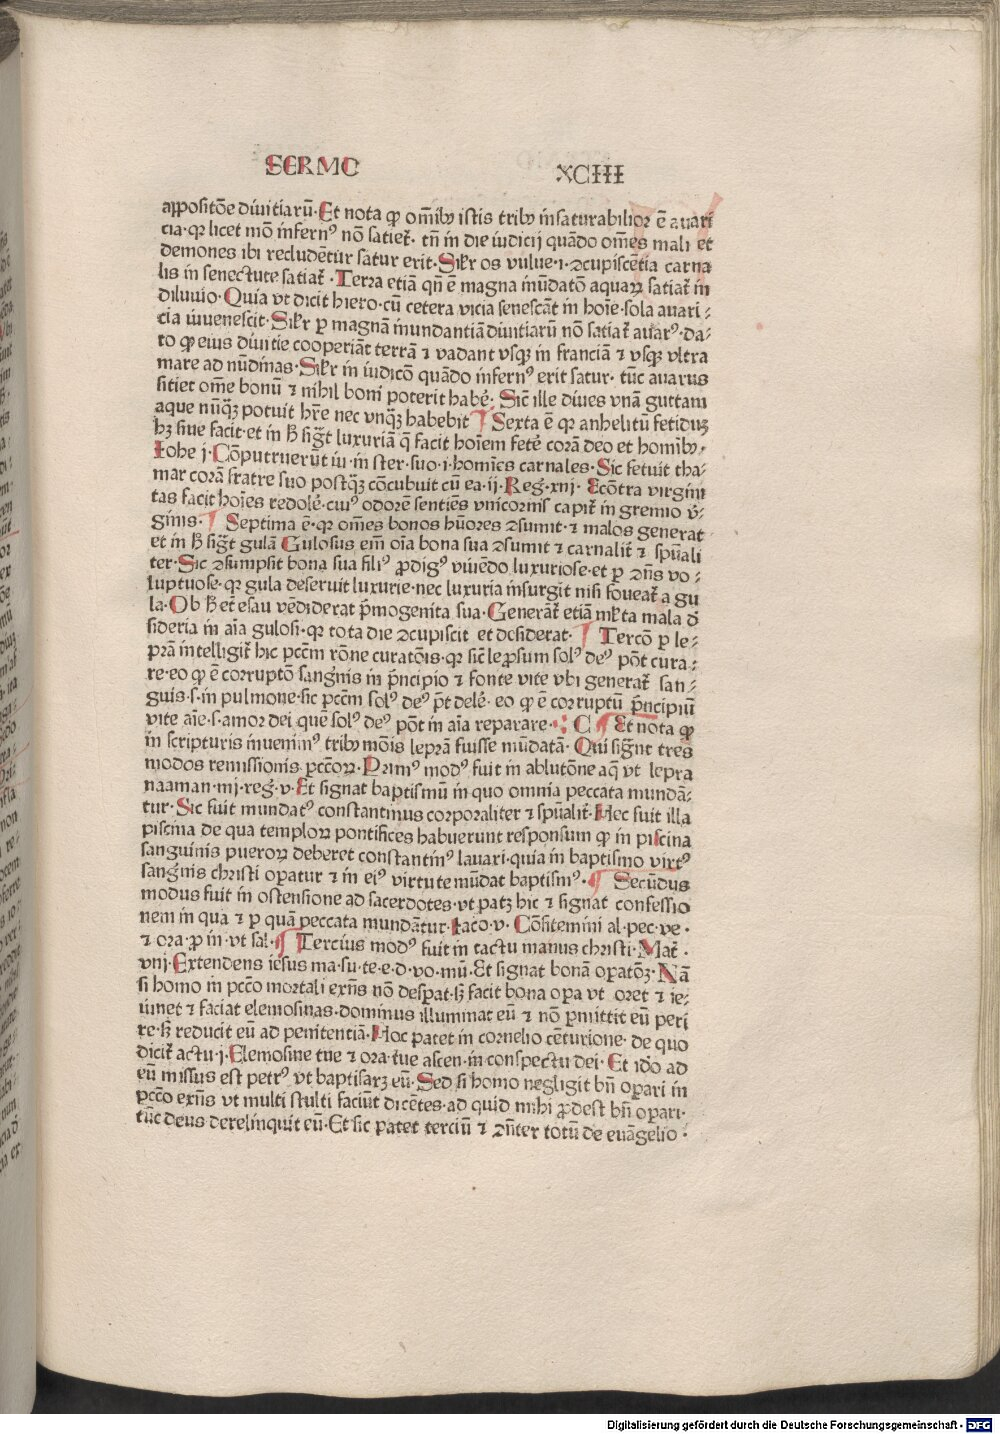 SERMO XCIII
appositōe diuitiarū. Et nota ꝙ om̄ibꝰ istis tribꝰ insaturabilior ē auari
cia. qꝛ licet mō infernꝰ nō satieť. tn̄ in die iudicij quādo om̄es mali et
demones ibi recludētur satur erit. Sil'r os vulue. i. ↄcupiscētia carna
lis in senectute satiať. Terra etiā qn̄ ē magna inūdatō aquaꝝ satiať in
diluuio. Quia vt dicit hiero. cū cetera vicia senescāt in hoīe. sola auari⸗
cia iuuenescit. Sil'r ꝑ magnā inundantiā diuitiarū nō satiať auarꝰ. da⸗
to ꝙ eius diuitie cooperiāt terrā ⁊ vadant vsqꝫ in franciā ⁊ vsqꝫ vltra
mare ad nūdinas. Sil'r in iudicō quādo infernꝰ erit satur. tūc auarus
sitiet om̄e bonū ⁊ nihil boni poterit habé. Sic̄ ille diues vnā guttam
aque nūqꝫ potuit hr̄e nec vnqꝫ habebit ¶ Sexta ē qꝛ anhelitū fetidū
hꝫ siue facit. et in ħ sigť luxuriā q̄ facit hoīem feté corā deo et homībꝰ.
Iohe j. Cōputruerūt iu. in ster. suo. i. homines carnales. Sic fetuit tha⸗
mar corā fratre suo postqꝫ cōcubuit cū ea. ij. Reg̃. xiij. Ecōtra virgini
tas facit hoīes redolé. cuiꝰ odorē sentiēs vnicornis capiť in gremio v̓⸗
ginis. ¶ Septima ē. qꝛ om̄es bonos hūores ↄsumit. ⁊ malos generat
et in ħ sigť gulā Gulosus em̄ oīa bona sua ↄsumit ⁊ carnaliť ⁊ spūali
ter. Sic ↄsumpsit bona sua filiꝰ ꝓdigꝰ viuēdo luxuriose. et ꝑ ↄn̄s vo⸗
luptuose. qꝛ gula deseruit luxurie. nec luxuria insurgit nisi foueať a gu
la. Ob ħ eť esau vēdiderat p̄mogenita sua. Generāť etiā ml'ta mala d̓
sideria in aīa gulosi. qꝛ tota die ↄcupiscit et desiderat. ¶ Tercō ꝑ le⸗
prā intelligiť hic pcc̄m rōne curatōis. qꝛ sic̄ leprosum solꝰ deꝰ pōt cura⸗
re. eo ꝙ ē corruptō sang̓nis in p̄ncipio ⁊ fonte vite vbi generať san⸗
guis. s. in pulmone. sic pcc̄m solꝰ deꝰ p̄t delé. eo ꝙ ē corruptū p̄ncipiū
vite aīe. s. amor dei quē solꝰ deꝰ pōt in aīa reparare. C ¶ Et nota ꝙ
in scripturis inuenimꝰ tribꝰ mōis leprā fuisse mūdatā. Qui sign̄t tres
modos remissionis pccōꝝ. Primꝰ modꝰ fuit in ablutōne aq̄ vt lepra
naaman. iiij. reg̃. v. Et signat baptismū in quo omnia peccata mundā⸗
tur. Sic fuit mundatꝰ constantinus corporaliter ⁊ spūaliť. Hec fuit illa
piscina de qua temploꝝ pontifices habuerunt responsum ꝙ in piscina
sanguinis pueroꝝ deberet constantinꝰ lauari. quia in baptismo virtꝰ
sang̓nis christi oꝑatur ⁊ in eiꝰ virtute mūdat baptismꝰ. ¶ Secūdus
modus fuit in ostensione ad sacerdotes. vt patꝫ hic ⁊ signat confessio
nem in qua ⁊ ꝑ quā peccata mundātur. Iaco. v. Cōfitemini al. pec. ve.
⁊ ora. ꝓ in. vt sal. ¶ Tercius modꝰ fuit in tactu manus christi. Mať.
viij. Extendens iesus ma. su. te. e. d. vo. mū. Et signat bonā oꝑatōꝫ. Nā
si homo in pccō mortali exn̄s nō desꝑat. sꝫ facit bona oꝑa vt oret ⁊ ie⸗
iunet ⁊ faciat elemosinas. dominus illuminat eū ⁊ nō ꝑmittit eū peri
re. sꝫ reducit eū ad penitentiā. Hoc patet in cornelio cēturione. de quo
diciť actu. j. Elemosine tue ⁊ ora. tue ascen. in conspectu dei. Et ido ad
eū missus est petrꝰ vt baptisarꝫ eū. Sed si homo negligit bn̄ oꝑari in
pccō exn̄s vt multi stulti faciūt dicētes. ad quid mihi ꝓdest bn̄ oꝑari.
tūc deus derelinquit eū. Et sic patet terciū ⁊ ↄn̄ter totū de euāgelio.
Digitalisierung gefördert durch die Deutsche Forschungsgemeinschaft - DFG